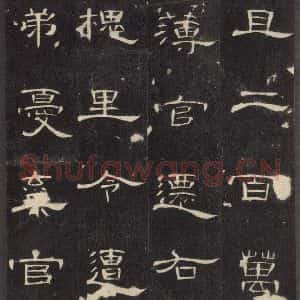 且二百萬
薄官遷右
槐里令遭
弟憂棄官
Shufawang.CN